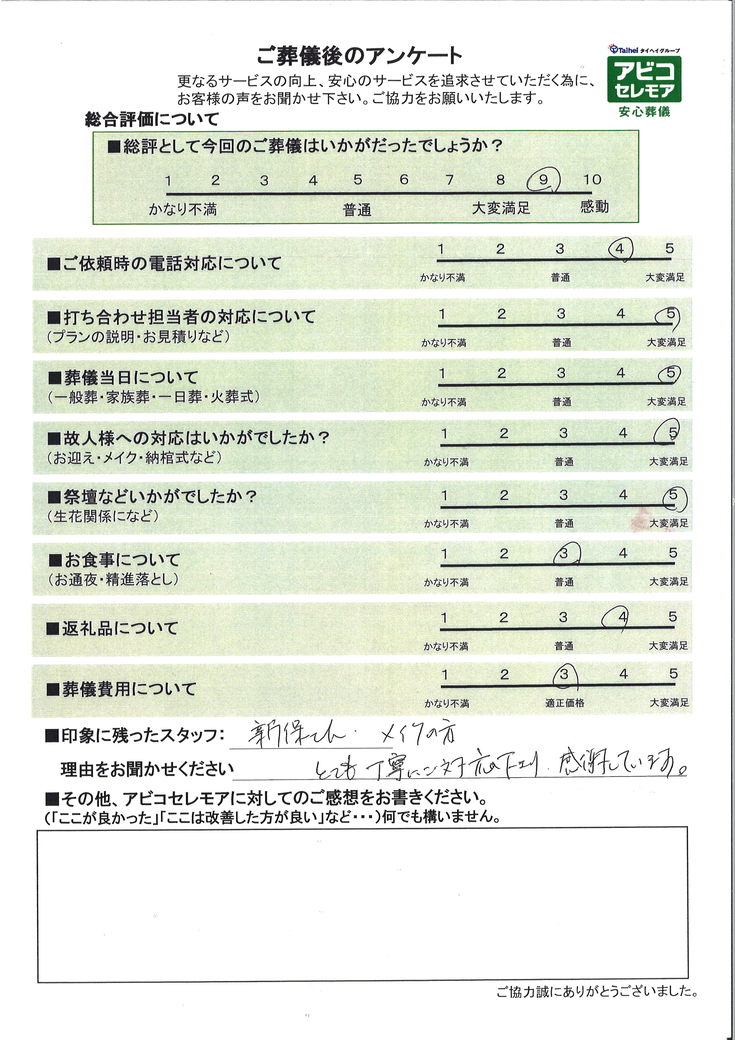 ご葬儀後のアンケート
Taihei タイヘイグループ
アビコ
セレモア
安心葬儀
更なるサービスの向上、安心のサービスを追求させていただく為に、
お客様の声をお聞かせ下さい。ご協力をお願いいたします。
総合評価について
■総評として今回のご葬儀はいかがだったでしょうか?
1 2 3 4 5 6 7 8 9 10
かなり不満 普通 大変満足 感動
■ご依頼時の電話対応について
1 2 3 4 5
かなり不満 普通 大変満足
■打ち合わせ担当者の対応について
(プランの説明・お見積りなど)
1 2 3 4 5
かなり不満 普通 大変満足
■葬儀当日について
(一般葬・家族葬・一日葬・火葬式)
1 2 3 4 5
かなり不満 普通 大変満足
■故人様への対応はいかがでしたか?
(お迎え・メイク・納棺式など)
1 2 3 4 5
かなり不満 普通 大変満足
■祭壇などいかがでしたか?
(生花関係になど)
1 2 3 4 5
かなり不満 普通 大変満足
■お食事について
(お通夜・精進落とし)
1 2 3 4 5
かなり不満 普通 大変満足
■返礼品について
1 2 3 4 5
かなり不満 普通 大変満足
■葬儀費用について
1 2 3 4 5
かなり不満 適正価格 大変満足
■印象に残ったスタッフ: 新保さん・メイクの方
理由をお聞かせください とても丁寧にご対応下さり、感謝しています。
■その他、アビコセレモアに対してのご感想をお書きください。
(「ここが良かった」「ここは改善した方が良い」など・・・)何でも構いません。
ご協力誠にありがとうございました。